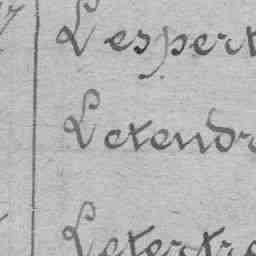 7 Lespert
Letendr
Letertre